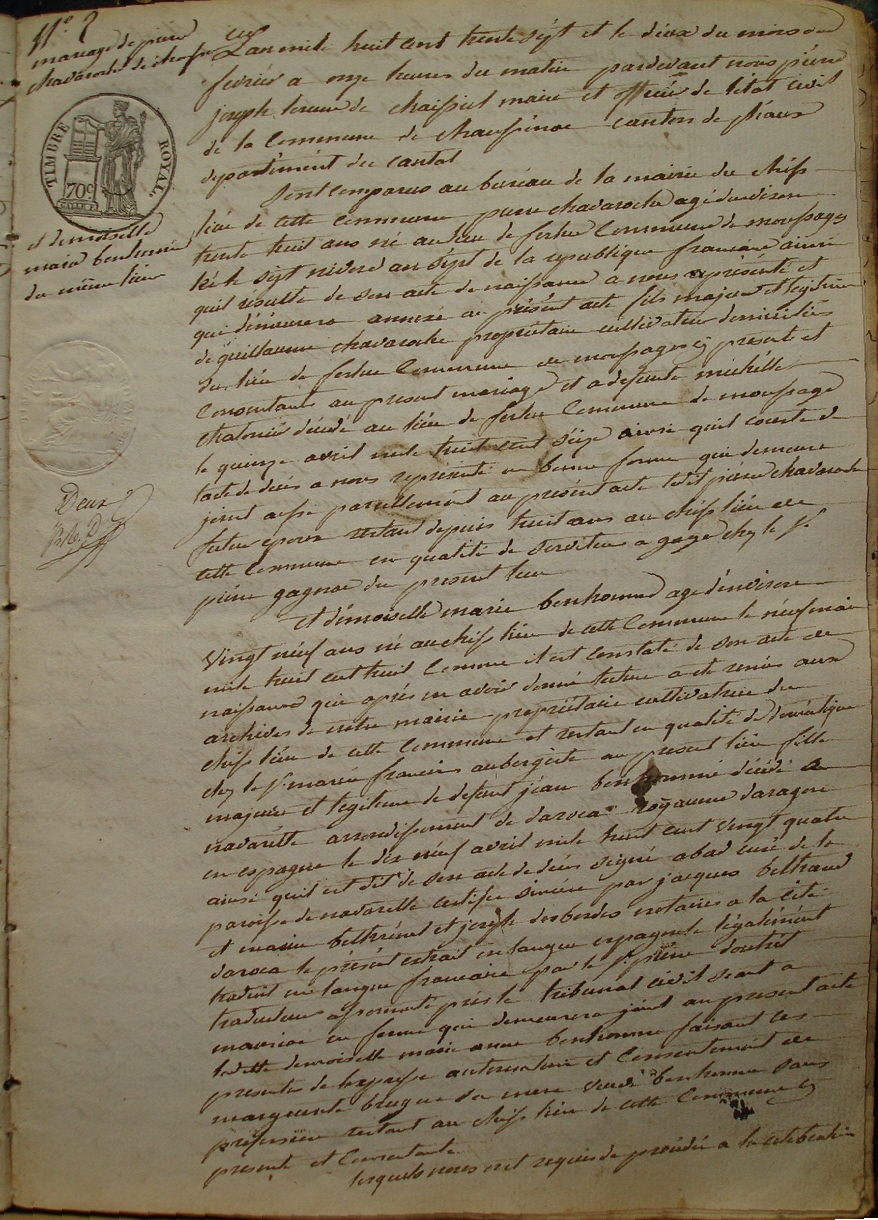 N° 2
mariage de pierre
chavaroche de chaussenac
TIMBRE ROYAL.
70c
et demoiselle
marie bonhomme
du même lieu
Deux
L'an mil huit cent trente sept et le deux du mois de
fevrier a onze heures du matin pardevant nous pierre
joseph maire et officier de l'état civil
de la Commune de chaussenac canton de pléaux
departement du cantal
Sont comparus au bureau de la mairie du chef
lieu de cette Commune pierre chavaroche agé denviron
trente huit ans né au lieu de Commune de moussages
le sept nivose an sept de la republique francaise ainsi
quil resulte de son acte de naissance a nous représenté et
qui demeurera annexé au présent acte fils majeur et legitime
de guillaume chavaroche propriétaire cultivateur domicilié
du lieu de Commune de moussages ci present et
Consentant au present mariage et a defunte michelle
décédé au lieu de Commune de moussage
le quinze avril mil huit cent seize ainsi quil conste de
lacte de décès a nous représenté en bonne forme qui demeure
joint aussi pareillement au présent acte ledit pierre chavaroche
futur epoux restant depuis huit ans au chef lieu de
cette Commune en qualité de serviteur a gage chez le Sr
pierre gagnac du present lieu
Et démoiselle marie bonhomme age denviron
vingt neuf ans né au chef lieu de cette Commune le neuf mai
mil huit cent huit Comme il est constaté de son acte de
naissance qui après en avoir donné lecture a été remis aux
archives de notre mairie propriétaire cultivatrice du
chef lieu de cette Commune et restant en qualité de domestique
chez le Sr francois aubergiste au present lieu fille
majeure et legitime de defunt jean bonhomme décédé a
navarette arrondissement de daroca royaume daragon
en espagne le dix neuf avril mil huit cent vingt quatre
ainsi quil est dit de son acte de décès signé abad curé de la
paroisse de navarette certifié sincere par jacques beltrand
et et joseph desbordes notaires a la cité
daroca le présent extrait en langue espagnole légalement
traduit en langue francaise par le Sr pierre
traducteur assermenté près le tribunal civil séant a
mauriac en forme qui demeurera joint au present acte
ladite demoiselle marie bonhomme faisant les
presente de lexpresse autorisation et Consentement de
marguerite sa mere veuve bonhomme sans
profession restant au chef lieu de cette Commune ci
present et Consentante
lesquels nous ont requis de procéder a la celebration